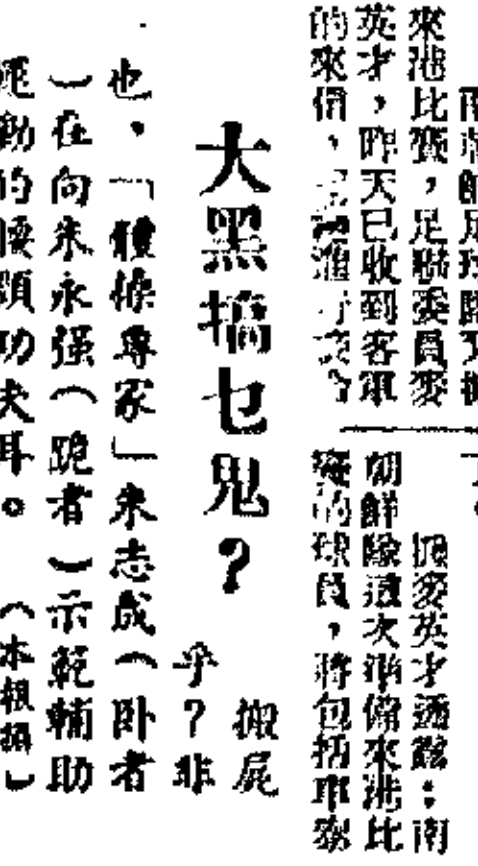 來港比賽，足聯委員麥
英才，昨天已收到客軍
的來信，
據麥英才透露：南
朝鮮隊這次準備來港比
賽的球員，將包括車
大黑搞乜鬼？
搬屍
乎？非
也，「體操專家」朱志成（卧者
）在向朱永强（跪者）示範輔助
運動的腰頸功夫耳。（本報攝）